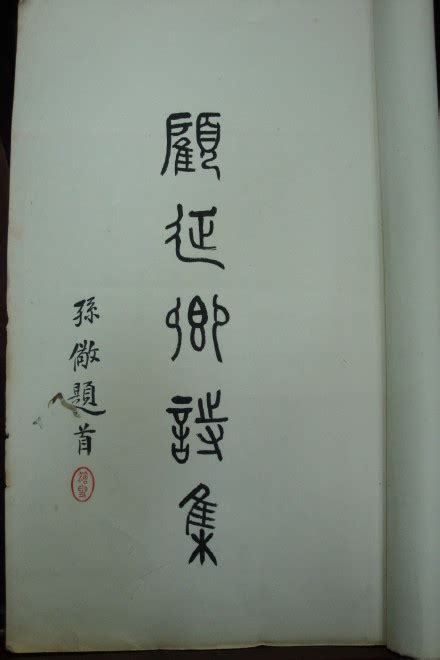 顧延卿詩集
孫儆題首